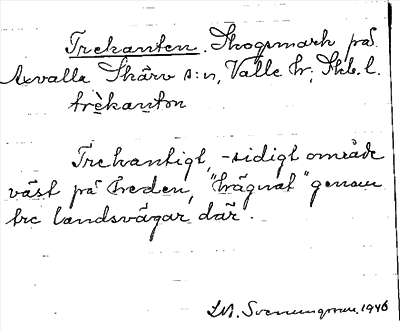 Trekanten. Skogsmark på
Axvalla Skärv s:n, Valle hr; Skb. l.
trèkanton
Trekantigt, -sidigt område
väst på heden, "trägnat" genom
tre landsvägar där.
1946